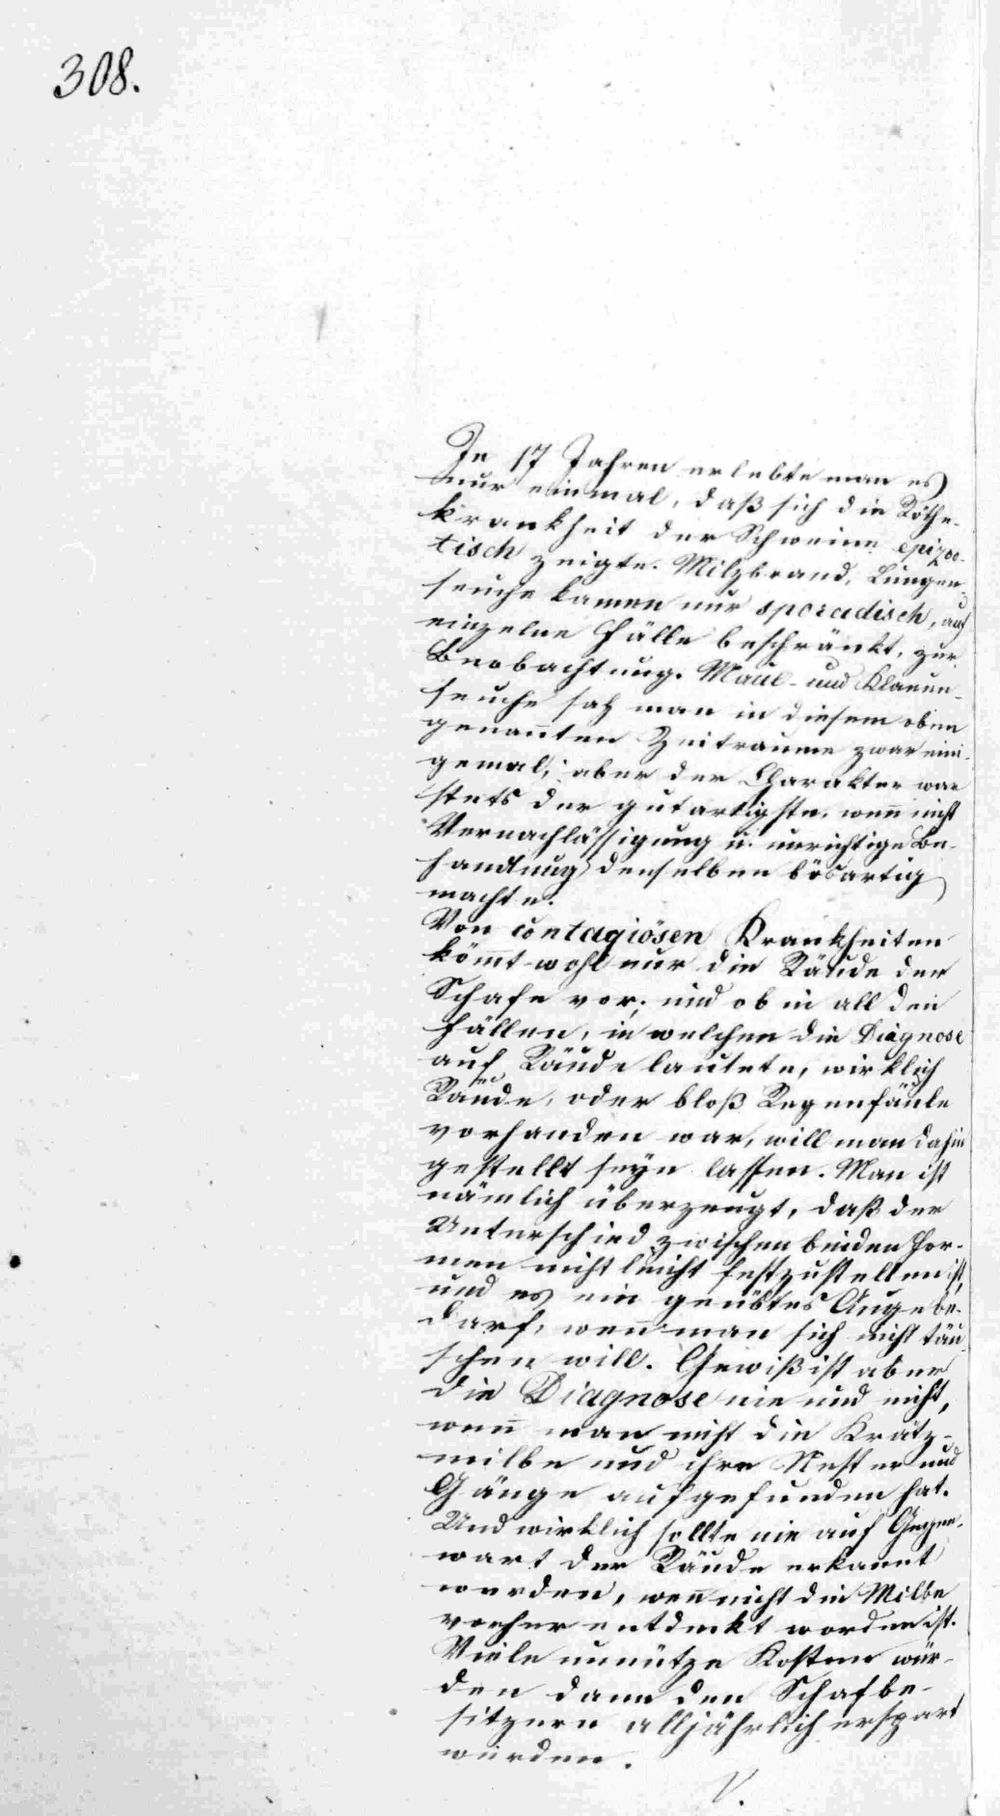 308.
In 17 Jahren erlebte man es
nur einmal, daß sich die Röthe-
krankheit der Schweine epizoo-
tisch zeigte. Milzbrand, Lungen-
seuche kamen nur sporadisch, auf
einzelne Fälle beschränkt, zur
Beobachtung. Maul- und Klauen-
seuche sah man in diesem oben
genannten Zeitraume zwar eini-
gemal, aber der Charakter war
stets der gutartigste, wenn nicht
Vernachlässigung u. unrichtige Be-
handlung denselben bösartig
machte.
Von contagiösen Krankheiten
kömmt wohl nur die Räude der
Schafe vor; und ob in all den
Fällen, in welchen die Diagnose
auf Räude lautete, wirklich
Räude, oder bloß Regenfäule
vorhanden war, will man dahin
gestellt seyn lassen. Man ist
nämlich überzeugt, daß der
Unterschied zwischen beiden For-
men nicht leicht festzustellen ist,
und es ein geübtes Auge be-
darf, wenn man sich nicht täu-
schen will. Gewiß ist aber
die Diagnose nie und nicht,
wenn man nicht die Krätz-
milbe und ihre Nester und
Gänge aufgefunden hat.
Und wirklich sollte nie auf Gegen-
wart der Räude erkannt
werden, wenn nicht die Milbe
vorher entdeckt worden ist.
Viele unnütze Kosten wür-
den dann den Schafbe-
sitzern alljährlich erspart
werden.
V.